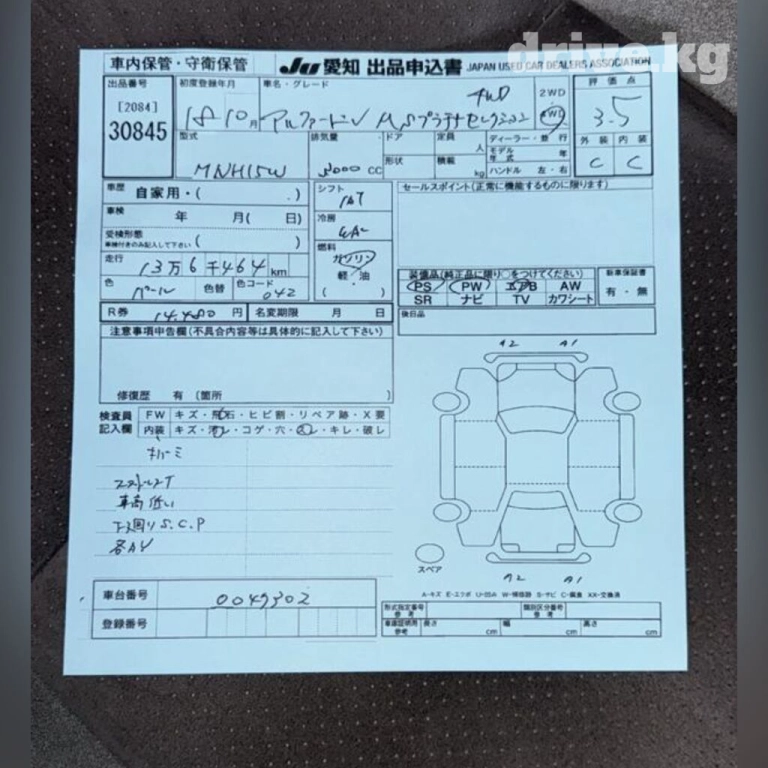 drive.kg
車内保管・守衛保管
Ju 愛知 出品申込書 JAPAN USED CAR DEALERS ASSOCIATION
出品番号 初度登録年月 車名・グレード 4WD 2WD 4WD 評価点
[2084]
30845
18 10月 アルファードV MSプラチナセレクション 3.5
型式 排気量 ドア 定員 人 ディーラー・並行 外装 内装
モデル年式 年
MNH15W 3000 CC 形状 積載 kg ハンドル 左・右 C C
車歴 自家用・( ) シフト IAT セールスポイント(正常に機能するものに限ります)
車検 年 月( 日) 冷房
受検形態 ( )
車検付きのみ記入して下さい
燃料 ガソリン 軽・油 ( )
走行 13万6千464km
色 パール 色替 色コード 042
装備品(純正品に限り○をつけてください) 新車保証書
PS PW エアB AW 有・無
SR ナビ TV カワシート
R券 14,480円 名変期限 月 日 後日品
注意事項申告欄(不具合内容等は具体的に記入して下さい)
A2 A1
修復歴 有 (箇所 )
検査員 FW キズ・飛石・ヒビ割・リペア跡・X要
記入欄 内装 キズ・汚レ・コゲ・穴・スレ・キレ・破レ
車高低い
下回りS.C.P
各AY
スペア
A2 A1
A-キズ E-エクボ U-凹ミ W-補修跡 S-サビ C-腐食 XX-交換済
車台番号 0049302
登録番号
形式指定番号 参考 類別区分番号 参考
車庫証明用 参考 長さ cm 幅 cm 高さ cm